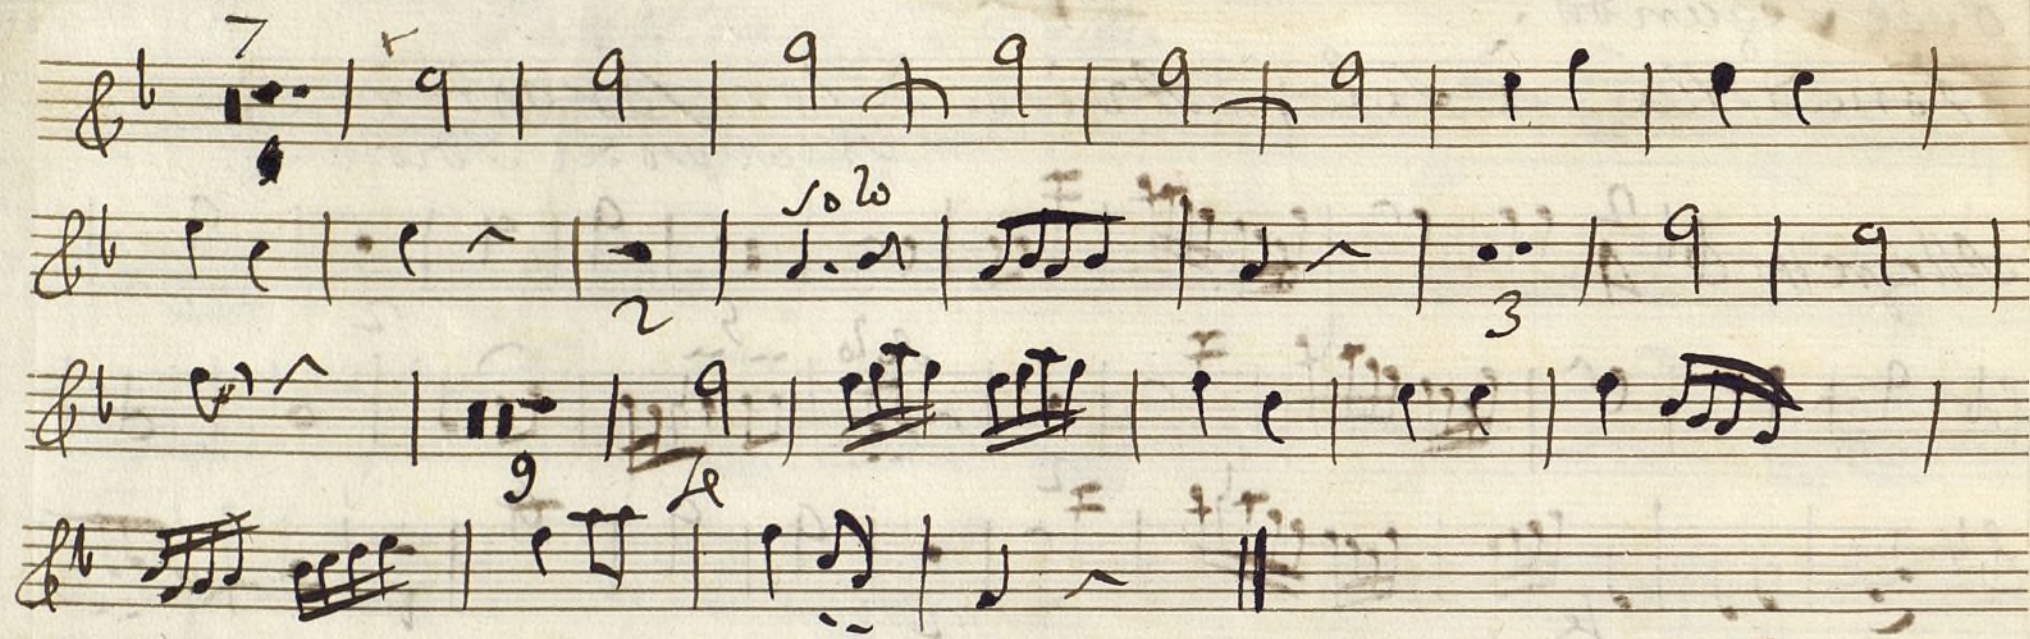 7
solo
2 3
9